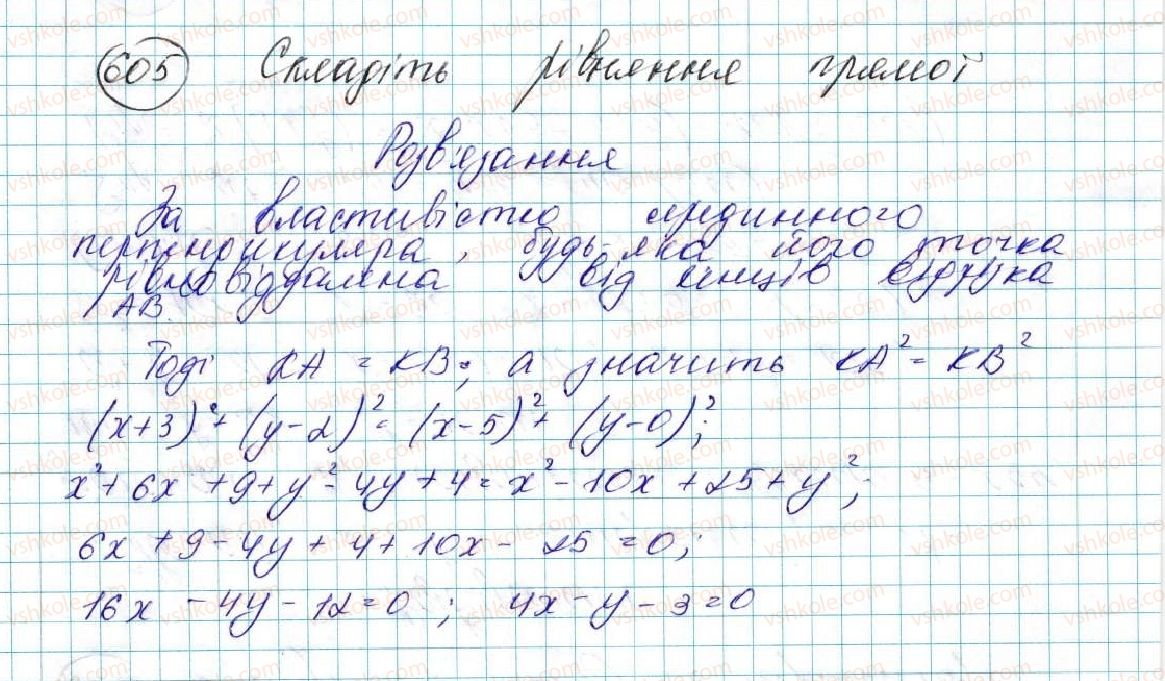 605 Складіть рівняння прямої
Розв'язання
За властивістю серединного
перпендикуляра, будь-яка його точка
рівновіддалена від кінців відрізка
AB.
Тоді KA = KB; а значить KA² = KB²
(x+3)² + (y-2)² = (x-5)² + (y-0)²;
x² + 6x + 9 + y² - 4y + 4 = x² - 10x + 25 + y²;
6x + 9 - 4y + 4 + 10x - 25 = 0;
16x - 4y - 12 = 0; 4x - y - 3 = 0